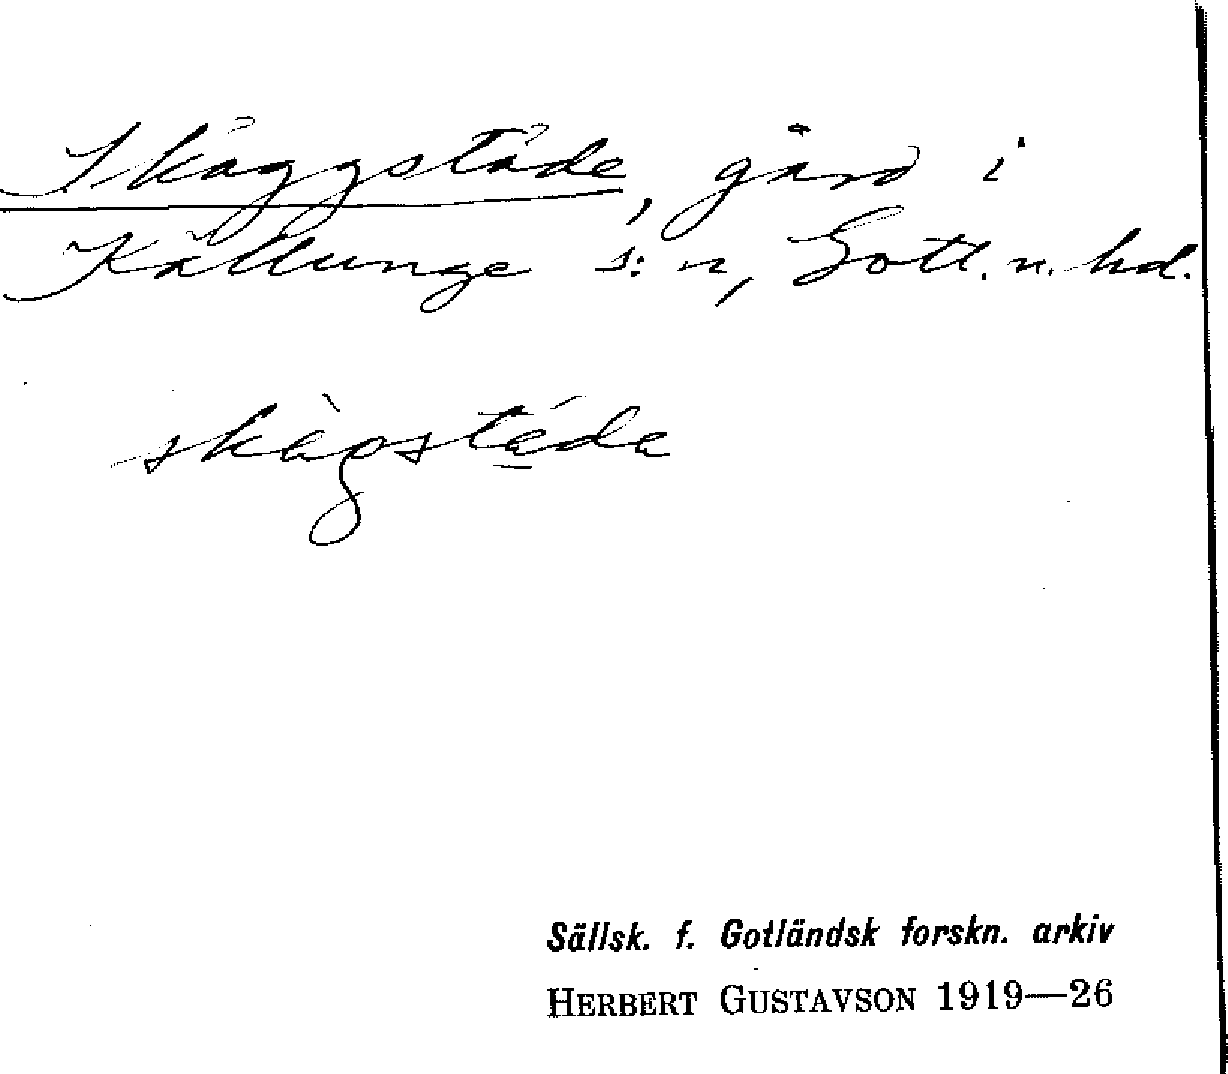 Skäggstäde, gård i
Källunge s:n, Gotl. n. hd.
skägstäda
Sällsk. f. Gotländsk forskn. arkiv
HERBERT GUSTAVSON 1919—26